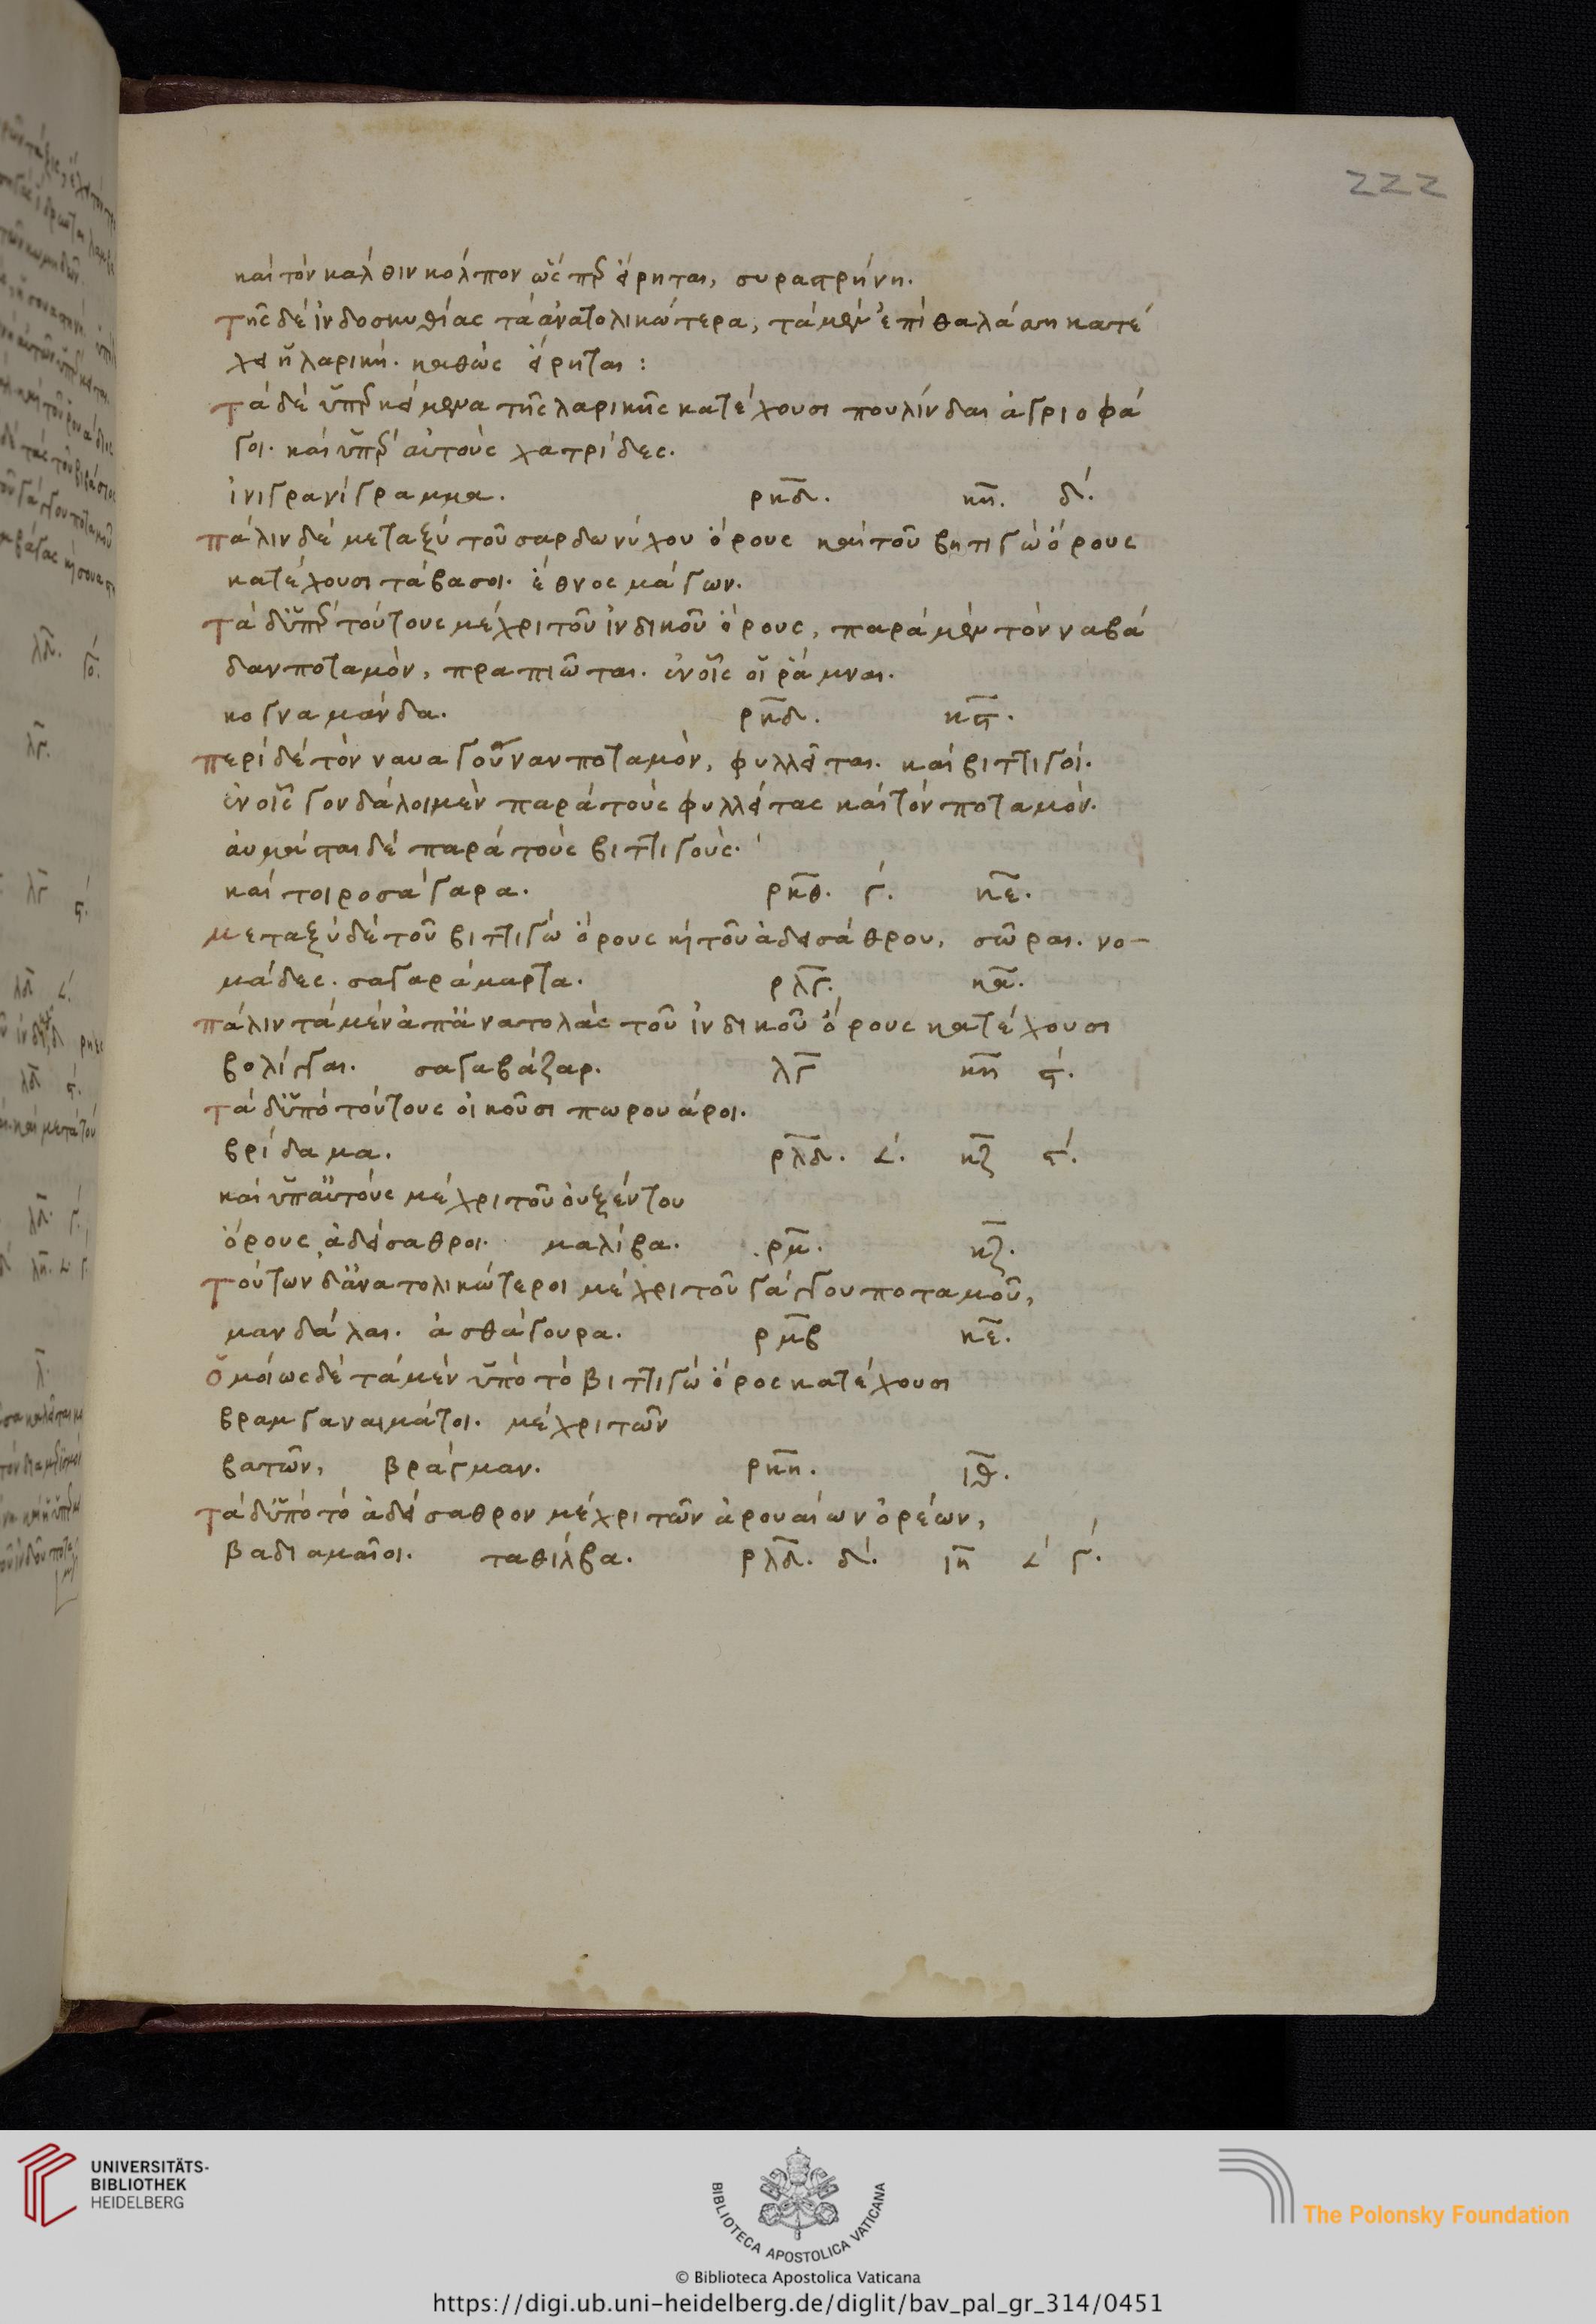 222
καὶ τὸν κάλθιν κόλπον ὡς πρ είρηται, συραστρήνη.
τῆς δὲ ἰνδοσκυθίας τὰ ἀνατολικώτερα, τὰ μὲν ἐπὶ θαλάσση κατέ
χει ἡ λαρική. καθὼς είρηται:
τὰ δὲ ὑπερκείμενα τῆς λαρικῆς κατέχουσι πουλίνδαι ἀγριοφά
γοι. καὶ ὑπὲρ αὐτοὺς χατρίδες.
ἰνιγρανίγραμμα. ρκδ. κη. δ΄.
πάλιν δὲ μεταξὺ τοῦ σαρδωνύχου ὄρους καὶ τοῦ βητιγὼ ὄρους
κατέχουσι τάβασοι. ἔθνος μάγων.
τὰ δ' ὑπὲρ τούτους μέχρι τοῦ ἰνδικοῦ ὄρους, παρὰ μὲν τὸν ναβά
δαν ποταμὸν, πραπιῶται. ἐν οἷς οἱ ῥάμναι.
κογναμάνδα. ρκδ. κϛ.
περὶ δὲ τὸν ναυαγοῦναν ποταμὸν, φυλλείται. καὶ βιττιγοί.
ἐν οἷς γονδάλοι μὲν παρὰ τοὺς φυλλείτας καὶ τὸν ποταμόν.
ἀμβάσται δὲ παρὰ τοὺς βιττιγούς.
καὶ τοιροσάγαρα. ρκθ. γ΄. κε.
μεταξὺ δὲ τοῦ βιττιγὼ ὄρους κὴ τοῦ ἀδεισάθρου, σῶραι. νο-
μάδες. σαγαράμαρτα. ρλγ. κα.
πάλιν τὰ μὲν ἀπ' ἀνατολὰς τοῦ ἰνδικοῦ ὄρους κατέχουσι
βολίγγαι. σαγαβάζαρ. λγ κη ϛ΄.
τὰ δ' ὑπὸ τούτους οἰκοῦσι πωρουάροι.
βριδαμα. ρλδ. ∠΄. κζ ϛ΄.
καὶ ὑπ' αὐτοὺς μέχρι τοῦ οὐξέντου
ὄρους, ἀδείσαθροι. μαλίβα. ρμ. κζ.
τούτων δ' ἀνατολικώτεροι μέχρι τοῦ γάγγου ποταμοῦ,
μανδάλαι. ἀσθάγουρα. ρμβ κε.
ὁμοίως δὲ τὰ μὲν ὑπὸ τὸ βιττιγὼ ὄρος κατέχουσι
βραμγαναιμάτοι. μέχρι τῶν
βατῶν, βράγμαν. ρκη. ιθ.
τὰ δ' ὑπὸ τὸ ἀδείσαθρον μέχρι τῶν ἀρουαίων ὀρέων,
βαδιαμαῖοι. ταθίλβα. ρλδ. δ΄. ιη ∠΄ γ΄.
UNIVERSITÄTS-
BIBLIOTHEK
HEIDELBERG
BIBLIOTECA APOSTOLICA VATICANA
The Polonsky Foundation
© Biblioteca Apostolica Vaticana
https://digi.ub.uni-heidelberg.de/diglit/bav_pal_gr_314/0451